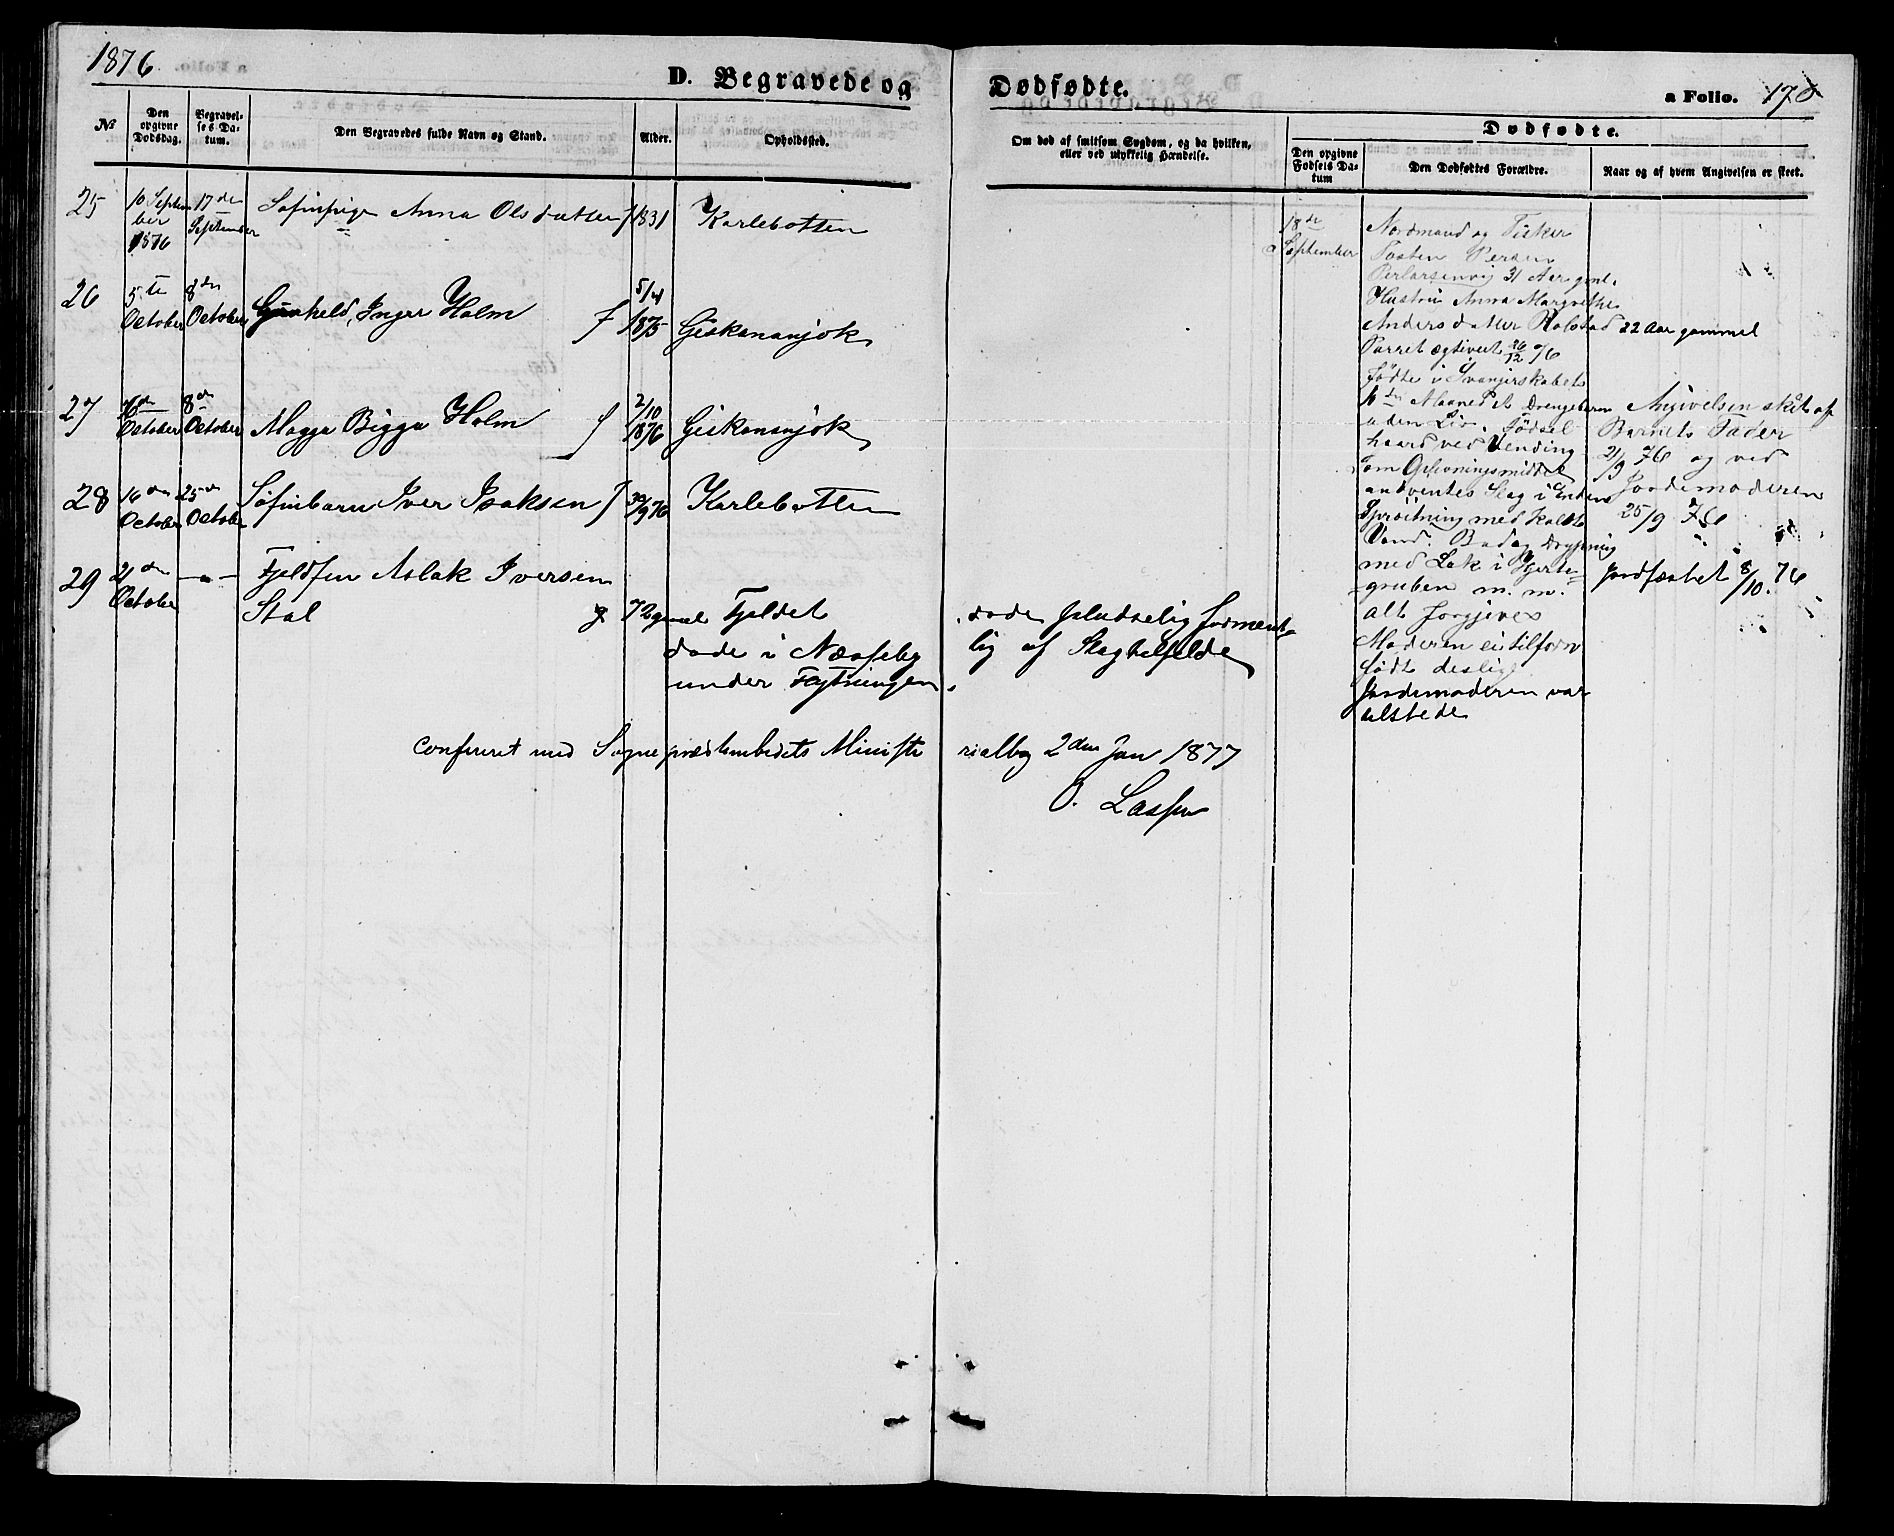 1876.
D. Begravede og Dødfødte.
a Folio. 178
No
Den opgivne Dødsdag.
Begravelses Datum.
Den Begravedes fulde Navn og Stand.
Alder.
Opholdssted.
Om død af smitsom Sygdom, og da hvilken, eller ved ulykkelig Hændelse.
Dødfødte.
Den opgivne Fødsels Datum
Den Dødfødtes Forældre.
Naar og af hvem Angivelsen er skeet.
25 10 September 1876 17de September Søfinpige Anna Olsdatter f 1831 Karlebotten
26 5te October 8de October Gunheld, Inger Holm f 5/4 1875 Giskananjok
27 October 8de October Magga Bigga Holm f 2/10 1876 Giskananjok
28 16de October 25de October Søfinbarn Iver Isaksen f 30/9 76 Karlebotten
29 21de October — " — Fjeldfin Aslak Iversen
Stal g 72 gml Fjeldet
døde i Næsseby
under Flytningen.
døde pludselig formentlig
af Slagtilfelde
18de September
Nordmand og Fisker
Tosten Persen
Perlarsenvig 31 Aar gml.
Hustru Anna Margrethe
Andersdatter Rolstad 22 Aar gammel
Parret ægtiviet 26/12 76
fødte i Svangerskabets
10de Maaned et Drengebarn
uden Liv. Fødsel
haard ved Vending
Som Oplivningsmiddel
anvendtes Slag i Enden
Sprøitning med Koldt
Vand. Bad og Drypning
med Lak i Hjerte-
gruben m. m.
alt forgjives
Moderen ei tilforn
født deslige
Jordemoderen var
tilstede
Angivelsen skêt af
Barnets Fader
21/9 76 og ved
Jordemoderen
25/9 76
Jordfæstet 8/10. 76
confereret med Sogneprestembedets Ministerialbog 2den Jan 1877
O. Lassen